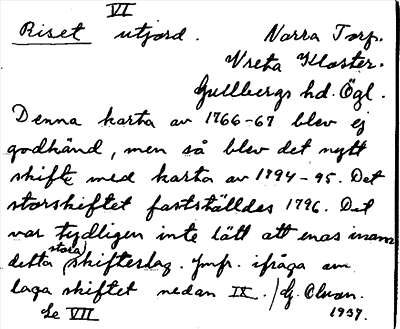 VI
Riset utjord. Norra Torp.
Vreta Kloster.
Gullbergs hd. Ögl.
Denna karta av 1766-67 blev ej
godkänd, men så blev det nytt
skifte med karta av 1794-95. Det
storskiftet fastställdes 1796. Det
var tydligen inte lätt att enas inom
detta (stora) skifteslag. Jmfr. ifråga om
laga skiftet nedan IX. / G.
Se VII 1937.